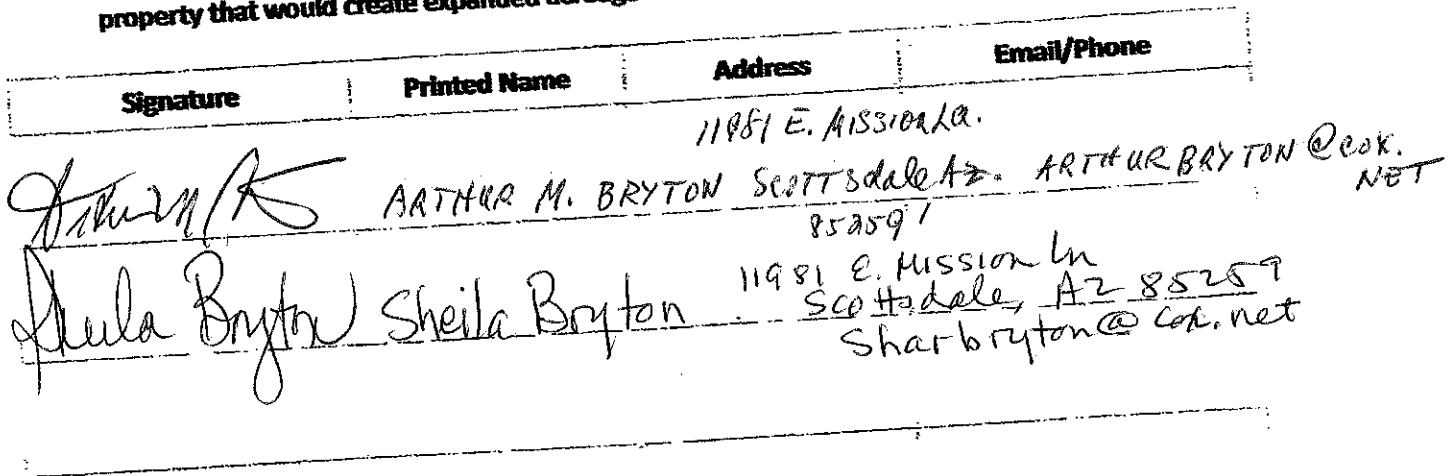 property that would create expanded acreage
Signature Printed Name Address Email/Phone
11981 E. MISSION LN.
ARTHUR M. BRYTON SCOTTSdale AZ. ARTHURBRYTON@COX.
NET
85259
Sheila Bryton Sheila Bryton 11981 E. MISSION Ln
Scottsdale, AZ 85259
Sharbryton@cox.net